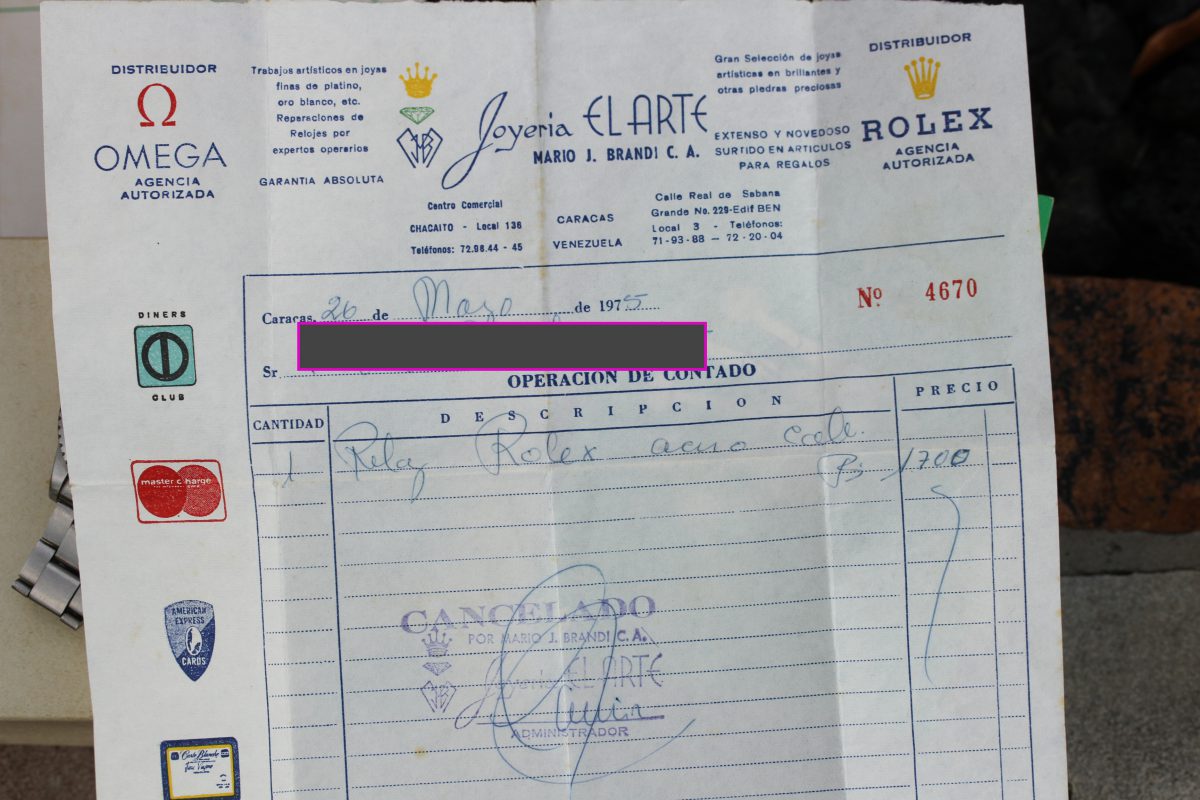 DISTRIBUIDOR
Ω
OMEGA
AGENCIA
AUTORIZADA
Trabajos artísticos en joyas
finas de platino,
oro blanco, etc.
Reparaciones de
Relojes por
expertos operarios
GARANTIA ABSOLUTA
Joyeria EL ARTE
MARIO J. BRANDI C. A.
Gran Selección de joyas
artísticas en brillantes y
otras piedras preciosas
EXTENSO Y NOVEDOSO
SURTIDO EN ARTICULOS
PARA REGALOS
DISTRIBUIDOR
ROLEX
AGENCIA
AUTORIZADA
Centro Comercial
CHACAITO - Local 136
Teléfonos: 72.96.44 - 45
CARACAS
VENEZUELA
Calle Real de Sabana
Grande No. 229-Edif BEN
Local 3 - Teléfonos:
71-93-88 — 72-20-04
Caracas, 26 de Mayo de 1975
Nº 4670
Sr
OPERACION DE CONTADO
CANTIDAD
DESCRIPCION
PRECIO
1 Reloj Rolex acero cale.
Bs 1700
DINERS
CLUB
master charge
AMERICAN
EXPRESS
CARDS
Carte Blanche
CANCELADO
POR MARIO J. BRANDI C. A.
Joyeria EL ARTE
ADMINISTRADOR